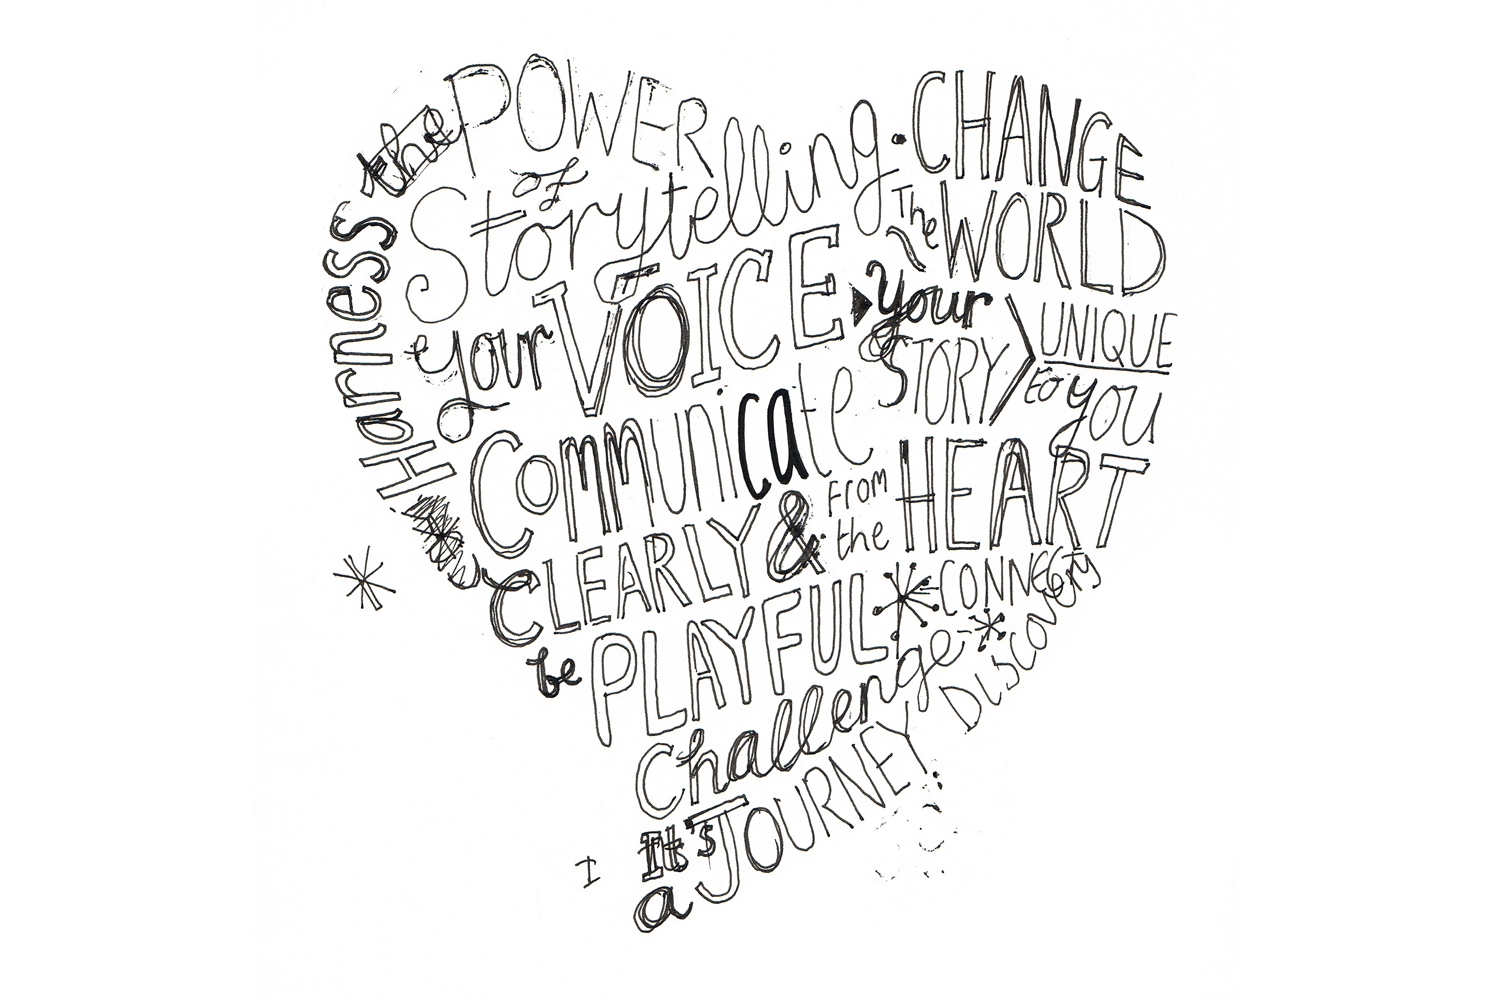 Harness the POWER
of
Storytelling.
CHANGE
The WORLD
Your VOICE
Your
STORY
UNIQUE
to you
Communicate
CLEARLY &
From
the
HEART
be PLAYFUL
CONNECT
Challenge
DISCOVERY
It's
a JOURNEY.
I